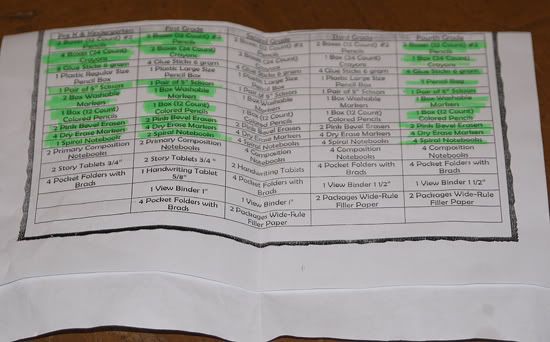 Pre K & Kindergarten
2 Boxes (12 Count) #2
Pencils
4 Boxes (24 Count)
Crayons
Glue Sticks 6 gram
1 Plastic Regular Size
Pencil Box
1 Pair of 5" Scissors
2 Box Washable
Markers
1 Box (12 Count)
Colored Pencils
2 Pink Bevel Erasers
4 Dry Erase Markers
1 Spiral Notebooks
2 Primary Composition
Notebooks
2 Story Tablets 3/4"
4 Pocket Folders with
Brads
First Grade
Boxes (12 Count) #2
Pencils
2 Boxes (24 Count)
Crayons
4 Glue Sticks 6 gram
1 Plastic Large Size
Pencil Box
1 Pair of 5" Scissors
1 Box Washable
Markers
1 Box (12 Count)
Colored Pencils
2 Pink Bevel Erasers
4 Dry Erase Markers
2 Spiral Notebooks
2 Primary Composition
Notebooks
2 Story Tablets 3/4 "
1 Handwriting Tablet
5/8"
1 View Binder 1"
4 Pocket Folders with
Brads
Second Grade
Boxes (12 Count) #2
Pencils
2 Boxes (24 Count)
Crayons
4 Glue Sticks 6 gram
1 Plastic Large Size
Pencil Box
1 Pair of 5" Scissors
1 Box Washable
Markers
1 Box (12 Count)
Colored Pencils
2 Pink Bevel Erasers
4 Dry Erase Markers
Spiral Notebooks
Composition
Notebooks
2 Handwriting Tablets
4 Pocket Folders with
Brads
1 View Binder 1"
2 Packages Wide-Rule
Filler Paper
Third Grade
Boxes (12 Count) #2
Pencils
1 Box (24 Count)
Crayons
4 Glue Sticks 6 gram
1 Plastic Large Size
Pencil Box
1 Pair of 5" Scissors
1 Box Washable
Markers
1 Box (12 Count)
Colored Pencils
2 Pink Bevel Erasers
4 Dry Erase Markers
4 Spiral Notebooks
4 Composition
Notebooks
4 Pocket Folders with
Brads
1 View Binder 1 1/2"
2 Packages Wide-Rule
Filler Paper
Fourth Grade
Boxes (12 Count) #2
Pencils
1 Box (24 Count)
Crayons
4 Glue Sticks 6 gram
1 Pencil Bag
1 Pair of 5" Scissors
1 Box Washable
Markers
1 Box (12 Count)
Colored Pencils
2 Pink Bevel Erasers
4 Dry Erase Markers
4 Spiral Notebooks
4 Composition
Notebooks
4 Pocket Folders with
Brads
1 View Binder 1 1/2"
2 Packages Wide-Rule
Filler Paper